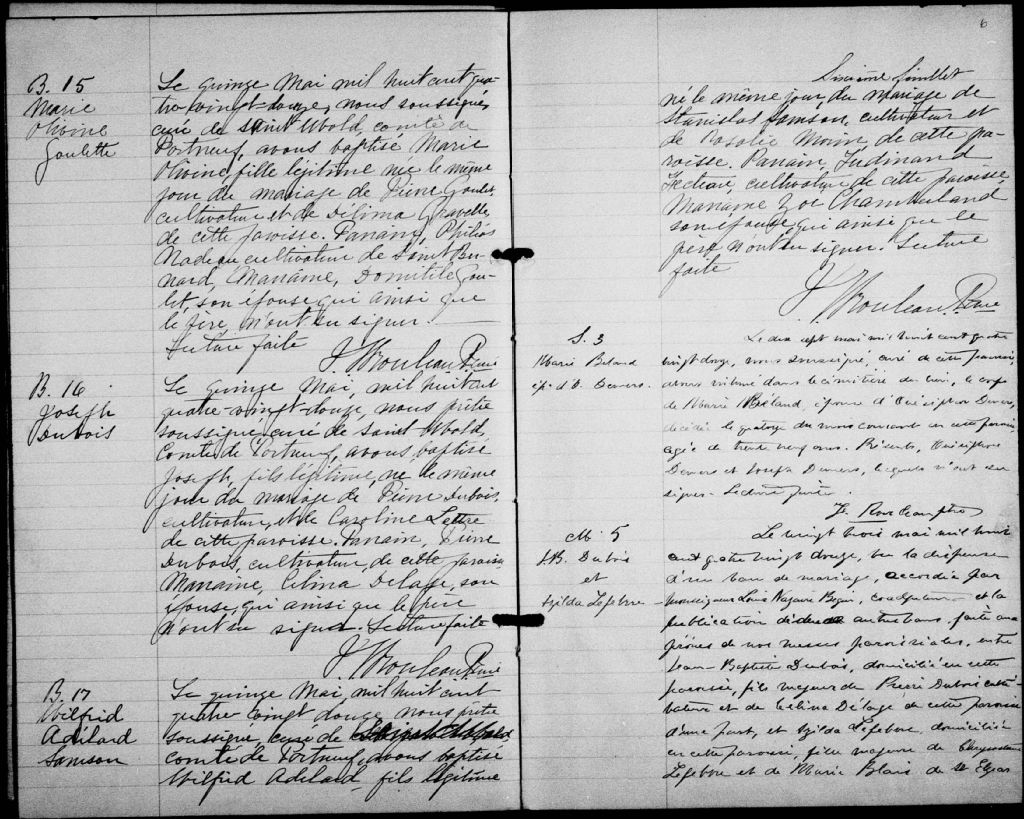 B. 15
Marie
Olivine
Goulette
Le quinze Mai mil huit cent qua-
tre vingt-douze, nous soussigné,
curé de Saint Ubald, comté de
Portneuf, avons baptisé Marie
Olivine fille légitime née le même
jour du mariage de Pierre Goulet,
cultivateur et de Délima Gravelle,
de cette paroisse. Parrain, Philias
Nadeau cultivateur de Saint Ber-
nard, Marraine, Domitile Gou-
let, son épouse qui ainsi que
le père, n'ont su signer.
Lecture faite
J. Rouleau Ptre
B. 16
Joseph
Dubois
Le quinze Mai, mil huit cent
quatre-vingt-douze, nous prêtre
soussigné curé de Saint-Ubald,
Comté de Portneuf, avons baptisé
Joseph, fils légitime, né le même
jour du mariage de Pierre Dubois,
cultivateur, et de Caroline
de cette paroisse. Parrain, Pierre
Dubois, cultivateur, de cette paroisse
Marraine, Celina Delage, son
épouse, qui ainsi que le père
n'ont su signer. Lecture faite
J. Rouleau Ptre
B. 17
Wilfrid
Adélard
Samson
Le quinze Mai, mil huit cent
quatre vingt douze, nous prêtre
soussigné, curé de
comté de Portneuf, avons baptisé
Wilfrid Adélard, fils légitime
6
Sixième feuillet
né le même jour, du mariage de
Stanislas Samson, cultivateur et
de Rosalie Morin, de cette pa-
roisse. Parrain, Ferdinand
Fecteau, cultivateur de cette paroisse,
Marraine Zoe Chamberland
son épouse, qui ainsi que le
père n'ont su signer. Lecture
faite
J. Rouleau Ptre
S. 3
Marie Beland
ép. d'O. Devers.
Le dix sept mai mil huit cent quatre
vingt douze, nous soussigné, curé de cette paroisse,
avons inhumé dans le cimetière du lieu, le corps
de Marie Béland, épouse d'
décédée le quatorze du mois courant en cette parois,
agée de trente neuf ans. Présents,
et Joseph lesquels n'ont su
signer. Lecture faite.
J. Rouleau ptre
M. 5
J.B. Dubois
et
Exilda Lefebvre
Le vingt trois mai mil huit
cent quatre vingt douze, vu la dispense
d'un banc de mariage, accordée par
Monseigneur Louis Nazaire Begin, coadjuteur et la
publication de deux autres bans faite aux
prônes de nos messes paroissiales, entre
Jean-Baptiste Dubois, domicilié en cette
paroisse, fils majeur de Pierre Dubois culti-
vateur et de Céline Délage de cette paroisse
d'une part, et Exilda Lefebvre, domiciliée
en cette paroisse, fille majeure de
Lefebvre et de Marie Blais de St